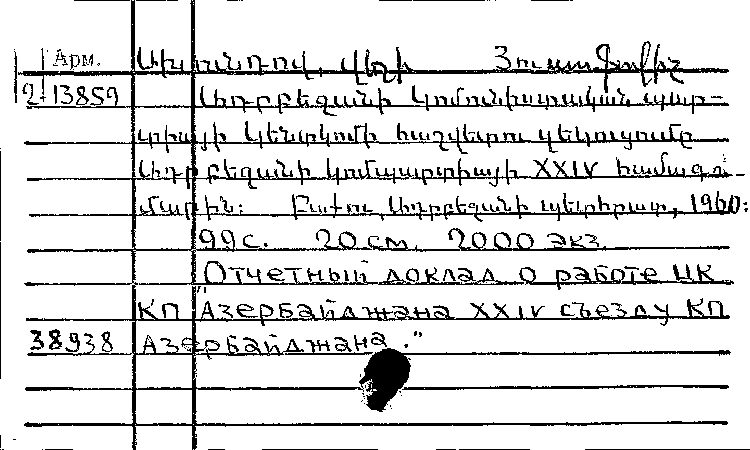 Арм. Ախունդով, Վելի Յուսուֆովիչ
2-13859 Ադրբեջանի կոմունիստական պար-
տիայի Կենտկոմի հաշվետու զեկուցումը
Ադրբեջանի կոմպարտիայի XXIV համագու-
մարին: Բաքու, Ադրբեջանի պետհրատ, 1960:
99 с. 20 см. 2000 экз.
"Отчетный доклад о работе ЦК
КП Азербайджана XXIV съезду КП
38938 Азербайджана."